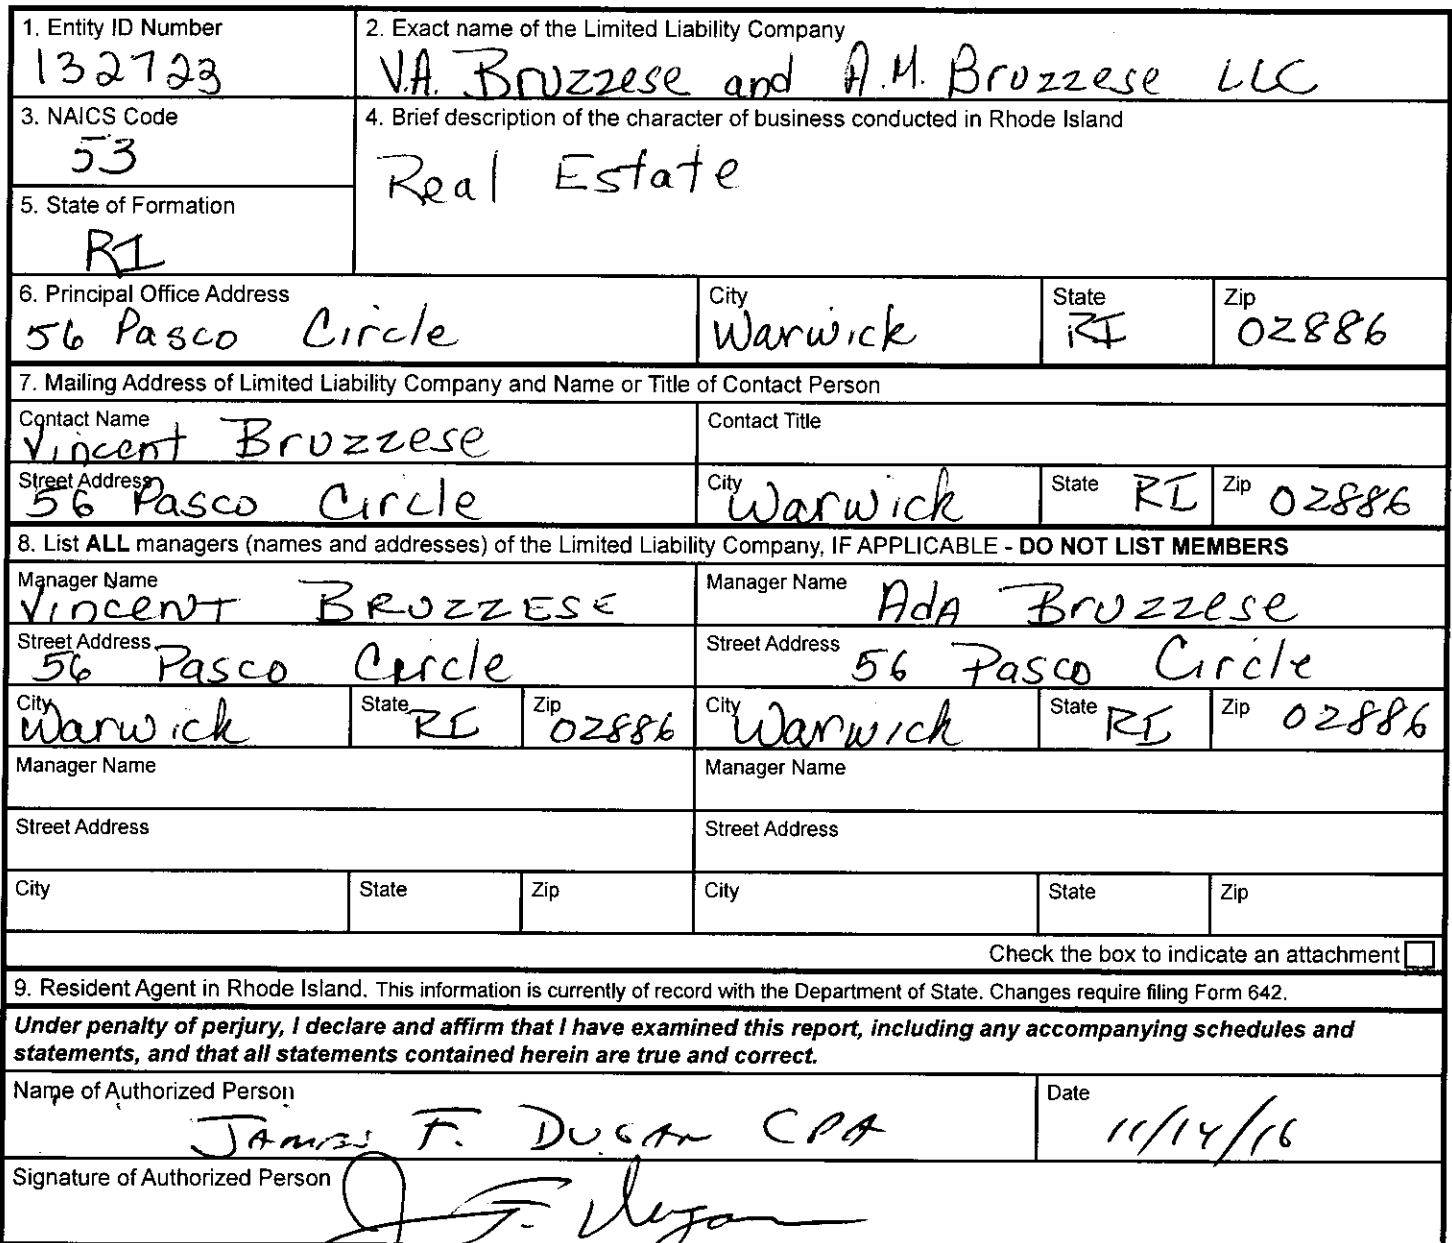 1. Entity ID Number
132723
2. Exact name of the Limited Liability Company
V.A. Bruzzese and A.M. Bruzzese LLC
3. NAICS Code
53
4. Brief description of the character of business conducted in Rhode Island
Real Estate
5. State of Formation
RI
6. Principal Office Address
56 Pasco Circle
City
Warwick
State
RI
Zip
02886
7. Mailing Address of Limited Liability Company and Name or Title of Contact Person
Contact Name
Vincent Bruzzese
Contact Title
Street Address
56 Pasco Circle
City
Warwick
State RI
Zip 02886
8. List ALL managers (names and addresses) of the Limited Liability Company, IF APPLICABLE - DO NOT LIST MEMBERS
Manager Name
Vincent BRUZZESE
Manager Name Ada Bruzzese
Street Address
56 Pasco Circle
Street Address 56 Pasco Circle
City
Warwick
State
RI
Zip
02886
City
Warwick
State RI
Zip 02886
Manager Name
Manager Name
Street Address
Street Address
City
State
Zip
City
State
Zip
Check the box to indicate an attachment
9. Resident Agent in Rhode Island. This information is currently of record with the Department of State. Changes require filing Form 642.
Under penalty of perjury, I declare and affirm that I have examined this report, including any accompanying schedules and
statements, and that all statements contained herein are true and correct.
Name of Authorized Person
James F. Dugan CPA
Date
11/14/16
Signature of Authorized Person
J F. Dugan